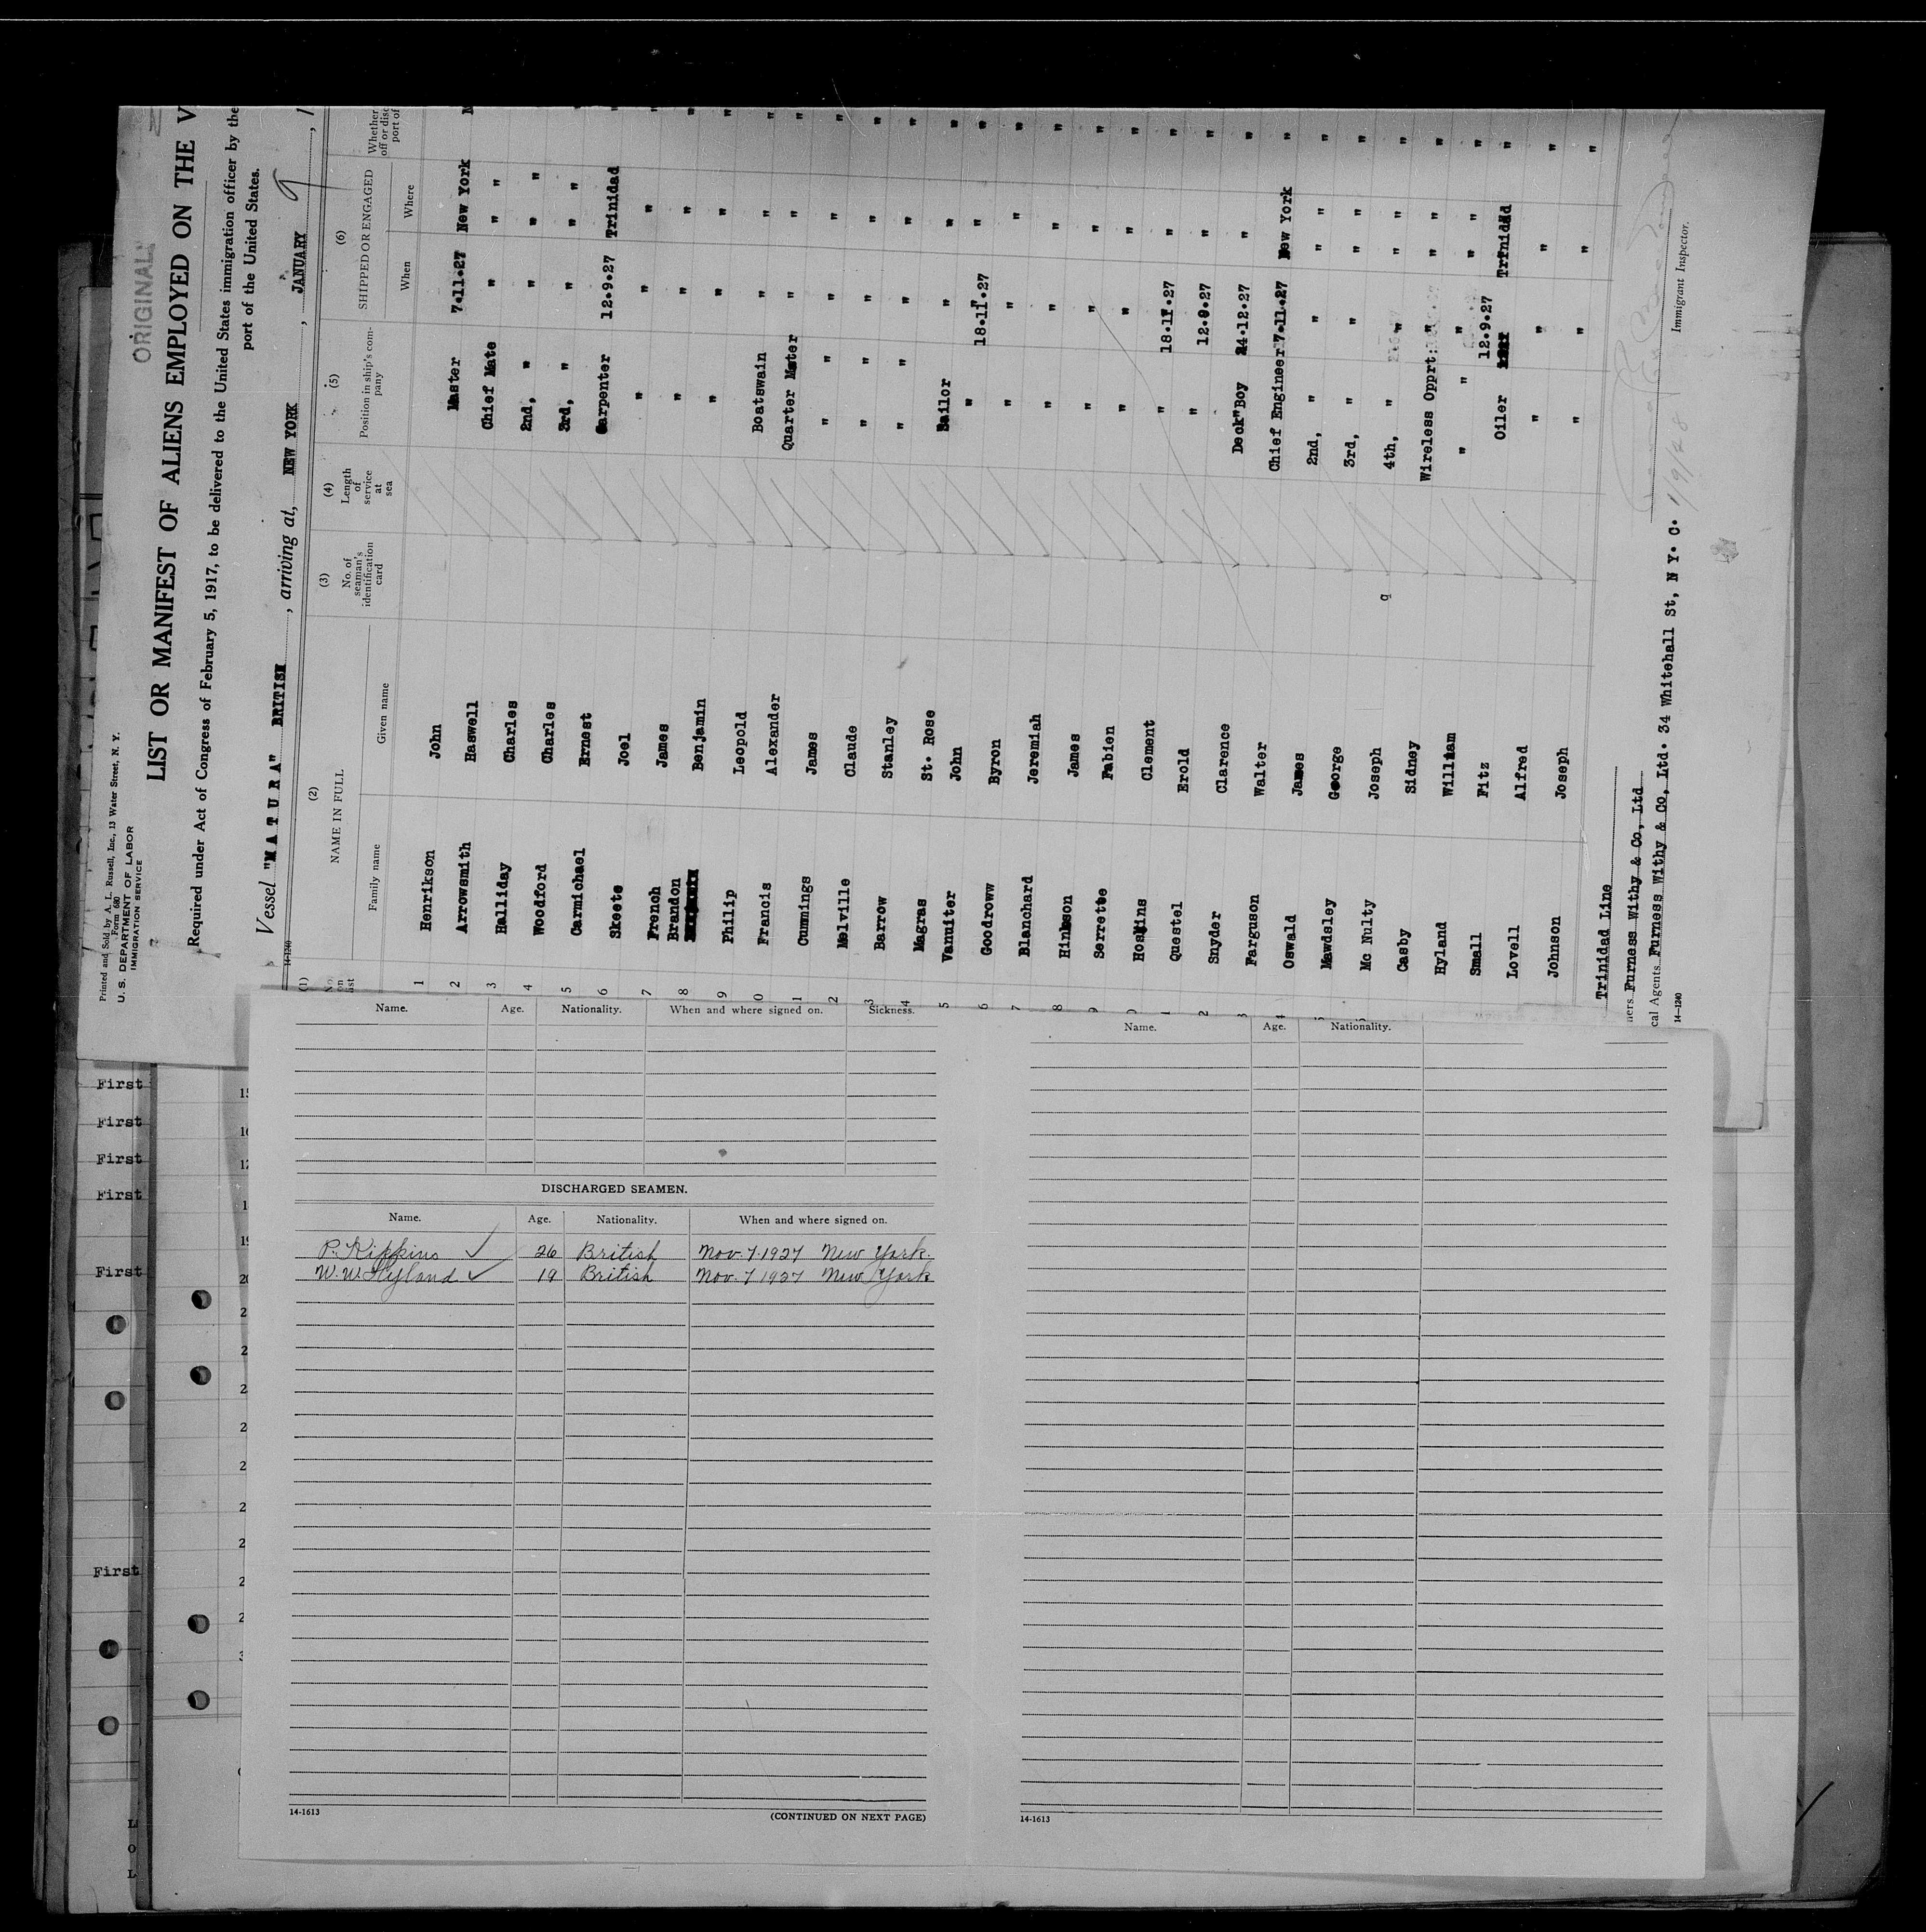 ORIGINAL
Printed and Sold by A. L. Russell, Inc., 13 Water Street, N. Y.
Form 680
U. S. DEPARTMENT OF LABOR
IMMIGRATION SERVICE
LIST OR MANIFEST OF ALIENS EMPLOYED ON THE V
Required under Act of Congress of February 5, 1917, to be delivered to the United States immigration officer by the
port of the United States.
Vessel "MATURA" BRITISH, arriving at, NEW YORK, JANUARY 9, 1
14-1240
(1) (2) (3) (4) (5) (6)
No. on list NAME IN FULL No. of seaman's identification card Length of service at sea Position in ship's company SHIPPED OR ENGAGED Whether
off or disc
port of
Family name Given name When Where
1 Henrikson John Master 7.11.27 New York N
2 Arrowsmith Haswell Chief Mate " " " "
3 Halliday Charles 2nd, " " " " "
4 Woodford Charles 3rd, " " " " "
5 Carmichael Ernest Carpenter 12.9.27 Trinidad "
6 Skeete Joel " " " "
7 French James " " " "
8 Brandon Benjamin " " " "
9 Philip Leopold Boatswain " " "
0 Francis Alexander Quarter Mster " " "
1 Cummings James " " " " "
2 Melville Claude " " " " "
3 Barrow Stanley " " " " "
4 Magras St. Rose Sailor " " "
5 Vanuiter John " 18.11.27 " "
6 Goodroww Byron " " " "
7 Blanchard Jeremiah " " " "
8 Hinkson James " " " "
9 Serrette Fabien " " " "
0 Hoskins Clement " 18.11.27 " "
1 Questel Erold " 12.9.27 " "
2 Snyder Clarence Deck "Boy 24.12.27 " "
3 Farguson Walter Chief Engineer 7.11.27 New York "
4 Oswald James 2nd, " " " " "
5 Mawdsley George 3rd, " " " " "
6 Mc Nulty Joseph 4th, " " " " "
Casby Sidney Wireless Opprt: " " " "
Hyland William " " " " " "
Small Fitz Oiler 12.9.27 Trinidad "
Lovell Alfred " " " "
Johnson Joseph " " " "
Trinidad Line
ners Furness Withy & Co, Ltd
cal Agents Furness Withy & CO, Ltd. 34 Whitehall St, N Y. C. 1/9/28
Immigrant Inspector.
14-1240
Name. Age. Nationality. When and where signed on. Sickness.
DISCHARGED SEAMEN.
Name. Age. Nationality. When and where signed on.
P. Kippins 26 British Nov. 7. 1927 New York.
W. W. Hyland 19 British Nov. 7 1927 New York
14-1613
(CONTINUED ON NEXT PAGE)
Name. Age. Nationality.
14-1613
First
First
First
First
First
First